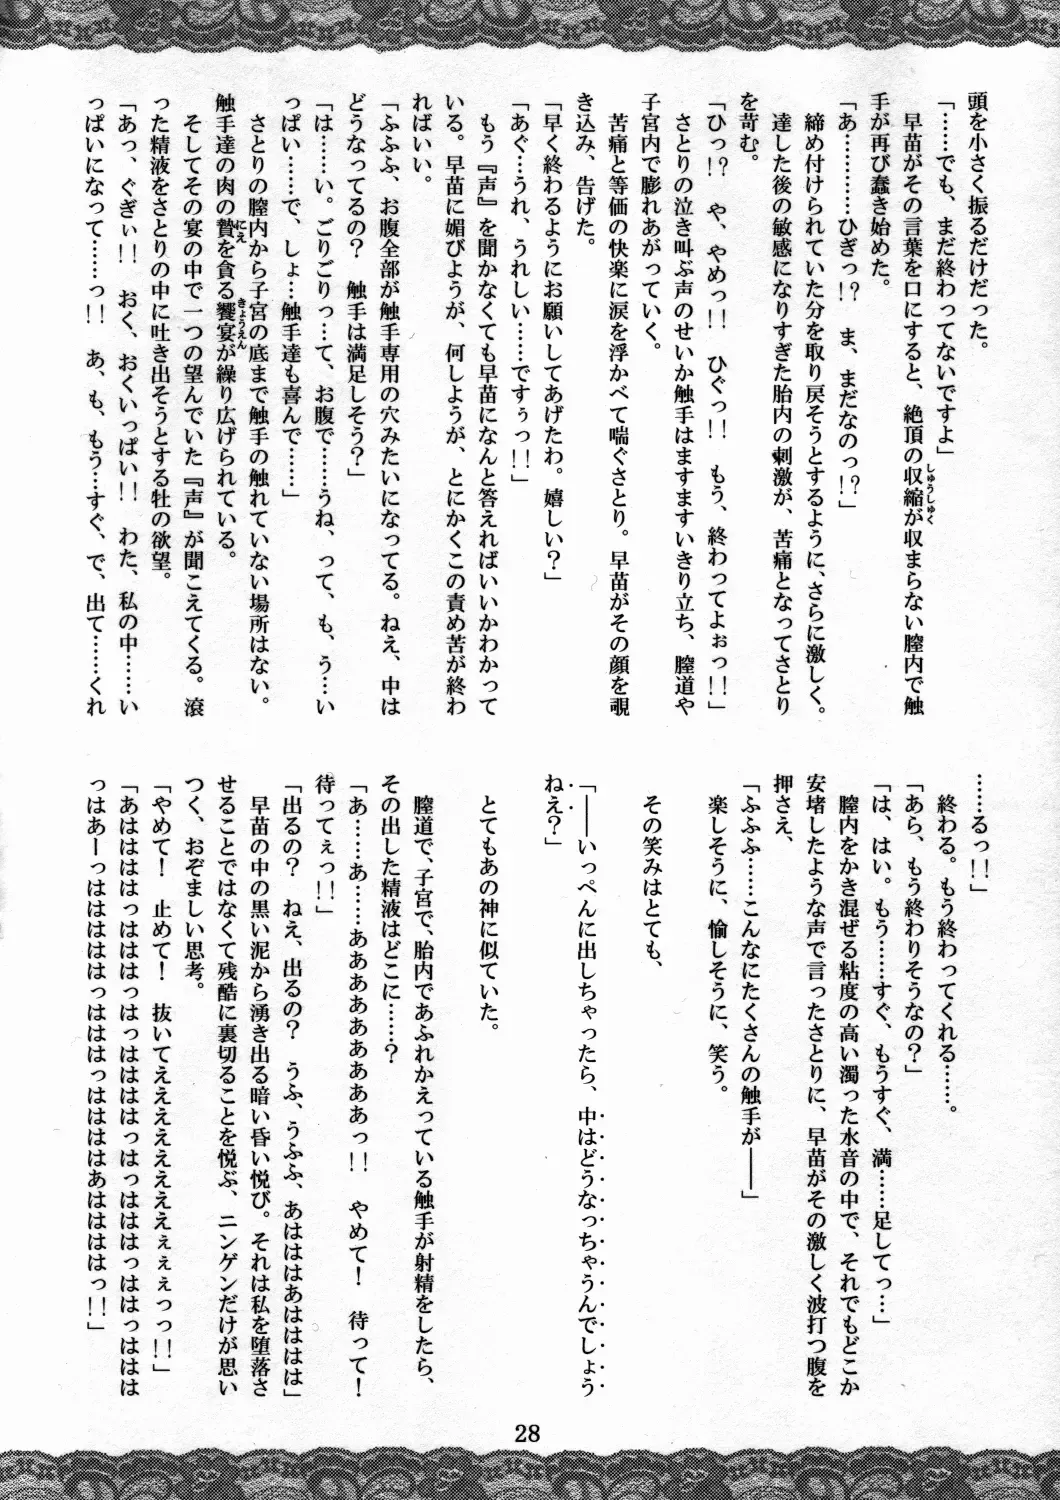 頭を小さく振るだけだった。
「……でも、まだ終わってないですよ」
早苗がその言葉を口にすると、絶頂の収縮が収まらない膣内で触
手が再び蠢き始めた。
「あ…………ひぎっ!? ま、まだなのっ!?」
締め付けられていた分を取り戻そうとするように、さらに激しく。
達した後の敏感になりすぎた胎内の刺激が、苦痛となってさとり
を苛む。
「ひっ!? や、やめっ!! ひぐっ!! もう、終わってよぉっ!!」
さとりの泣き叫ぶ声のせいか触手はますますいきり立ち、膣道や
子宮内で膨れあがっていく。
苦痛と等価の快楽に涙を浮かべて喘ぐさとり。早苗がその顔を覗
き込み、告げた。
「早く終わるようにお願いしてあげたわ。嬉しい?」
「あぐ…うれ、うれしい……ですぅっ!!」
もう『声』を聞かなくても早苗になんと答えればいいかわかって
いる。早苗に媚びようが、何しようが、とにかくこの責め苦が終わ
ればいい。
「ふふふ、お腹全部が触手専用の穴みたいになってる。ねえ、中は
どうなってるの? 触手は満足しそう?」
「は……い。ごりごりっ…て、お腹で……うね、って、も、う…い
っぱい……で、しょ…触手達も喜んで……」
さとりの膣内から子宮の底まで触手の触れていない場所はない。
触手達の肉の贄を貪る饗宴が繰り広げられている。
そしてその宴の中で一つの望んでいた『声』が聞こえてくる。滾
った精液をさとりの中に吐き出そうとする牡の欲望。
「あっ、ぐぎぃ!! おく、おくいっぱい!! わた、私の中……い
っぱいになって……っ!! あ、も、もう…すぐ、で、出て……くれ
……るっ!!」
終わる。もう終わってくれる……。
「あら、もう終わりそうなの?」
「は、はい。もう……すぐ、もうすぐ、満……足してっ…」
膣内をかき混ぜる粘度の高い濁った水音の中で、それでもどこか
安堵したような声で言ったさとりに、早苗がその激しく波打つ腹を
押さえ、
「ふふふ……こんなにたくさんの触手が――」
楽しそうに、愉しそうに、笑う。
その笑みはとても、
「――いっぺんに出しちゃったら、中はどうなっちゃうんでしょう
ねえ?」
とてもあの神に似ていた。
膣道で、子宮で、胎内であふれかえっている触手が射精をしたら、
その出した精液はどこに……?
「あ……あ……ああああああああっ!! やめて! 待って!
待ってぇっ!!」
「出るの? ねえ、出るの? うふ、うふふ、あはははあはははは」
早苗の中の黒い泥から湧き出る暗い昏い悦び。それは私を堕落さ
せることではなくて残酷に裏切ることを悦ぶ、ニンゲンだけが思い
つく、おぞましい思考。
「やめて! 止めて! 抜いてえええええええぇぇぇっっ!!」
「あははははっはははっはっはははははっはっははははっははっははは
っはあーっはははははっはははっははははあははははっ!!」
28